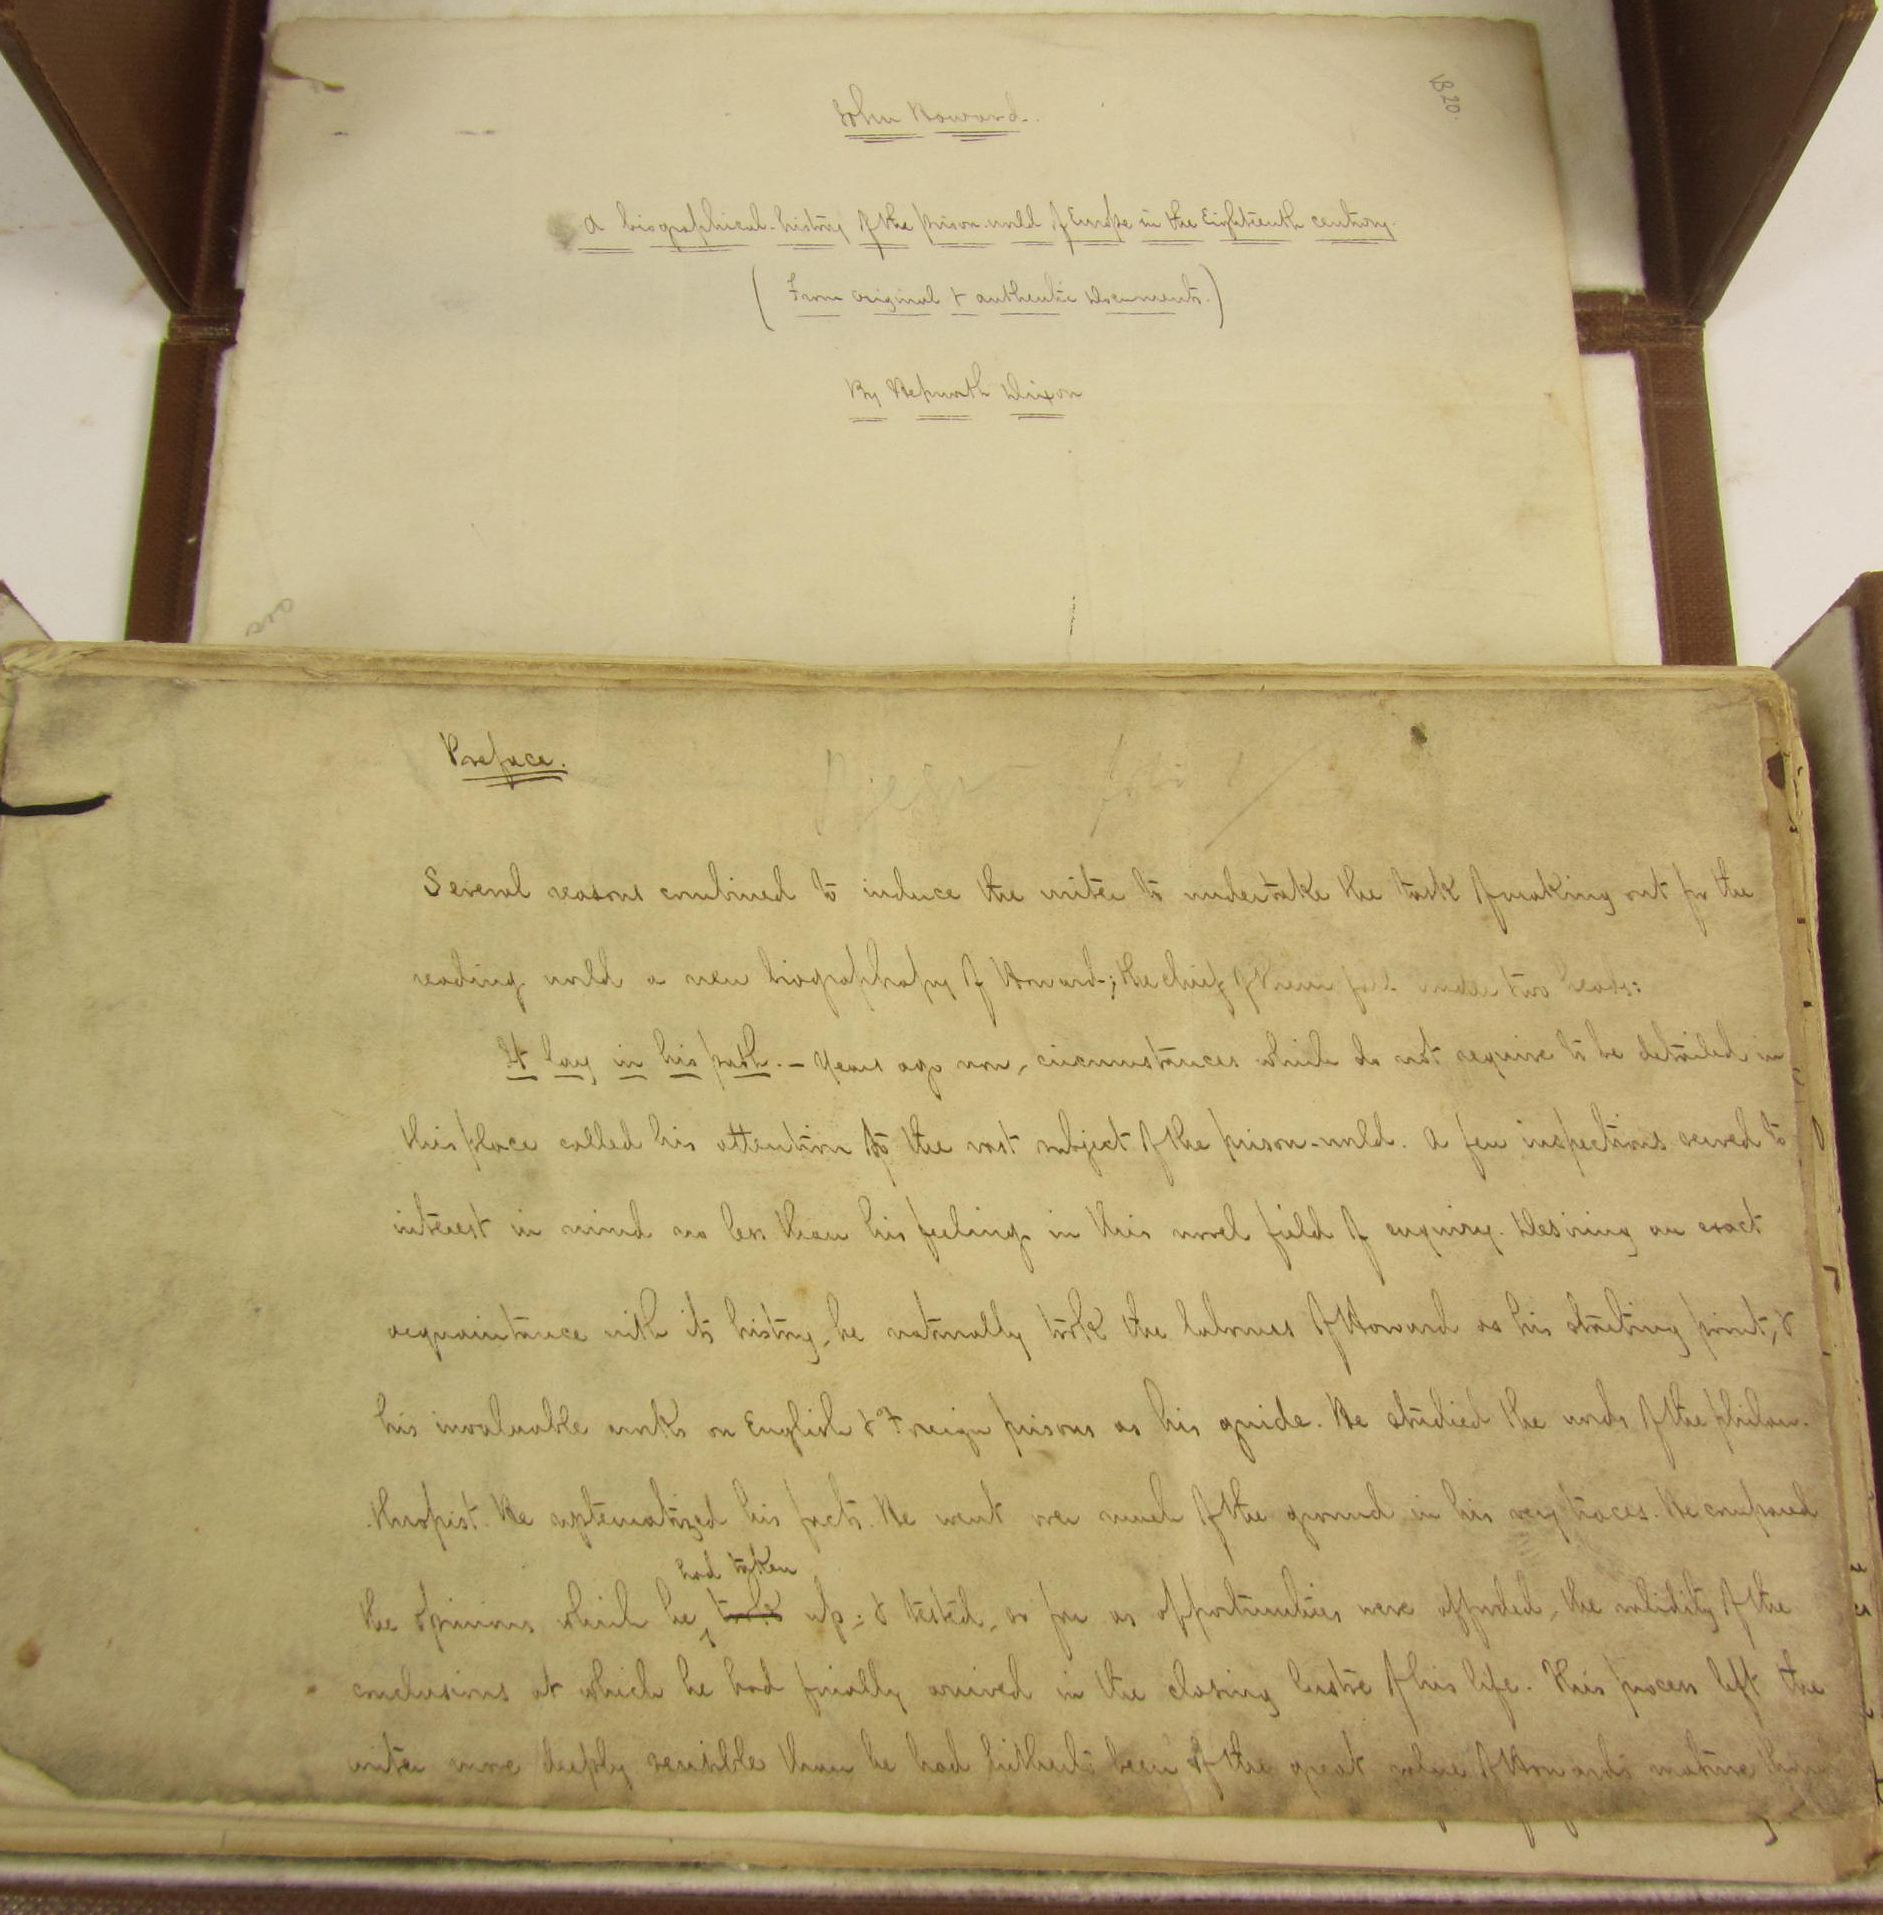 VB 20.
John Howard.
A biographical-history of the prison-world of Europe in the Eighteenth century.
( From original & authentic documents. )
By Hepworth Dixon
Preface.
Several reasons combined to induce the writer to undertake the task of making out for the
reading world a new biographaphy of Howard-; the chief of them fall under two heads:
It lay in his path. – Years ago now, circumstances which do not require to be detailed in
this place called his attention to the vast subject of the prison-world. A few inspections served to
interest in mind no less than his feelings in this novel field of enquiry. Desiring an exact
acquaintance with its history, he naturally took the labours of Howard as his starting point, &
his invaluable works on English & Foreign prisons as his guide. He studied the words of the philan-
thropist. He systematized his facts. He went over much of the ground in his very traces. He compared
had taken
the opinions which he took up; & tested, so far as opportunities were afforded, the validity of the
conclusions at which he had finally arrived in the closing lustre of his life. This process left the
writer more deeply sensible than he had hitherto been of the great value of Howard's mature